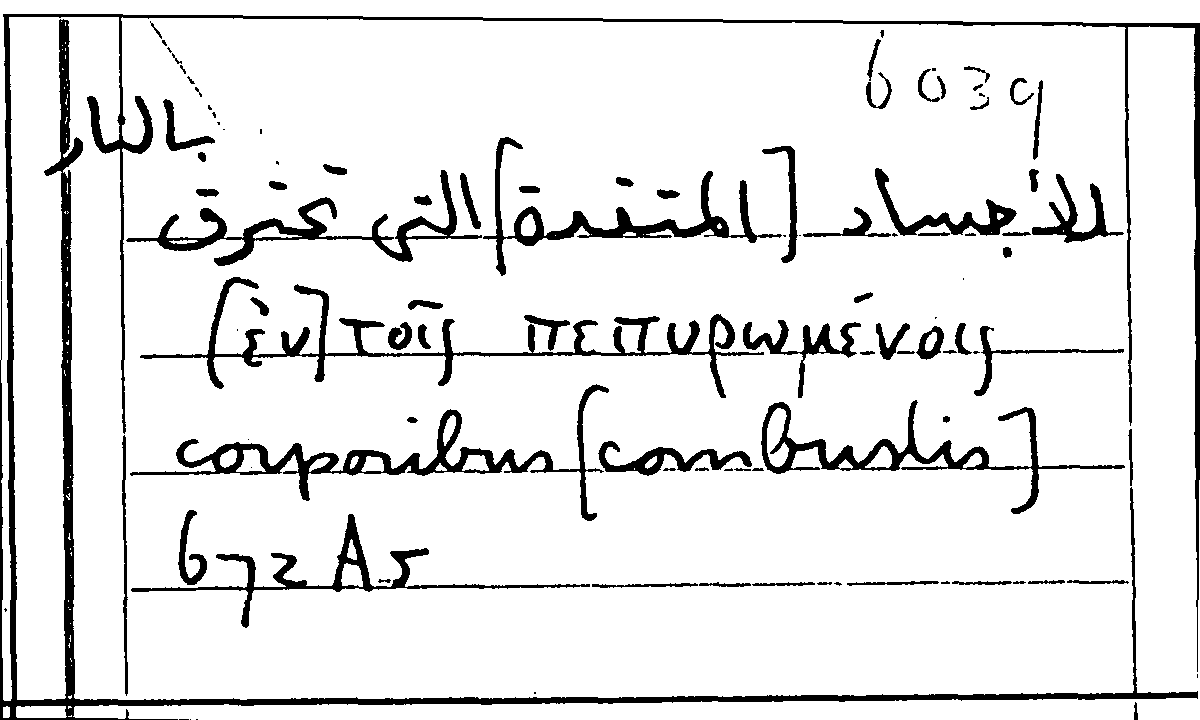 6039
للأجساد [المتقدة] التى تحترق
بالنار
[ἐν] τοῖς πεπυρωμένοις
corporibus [combustis]
672 A5